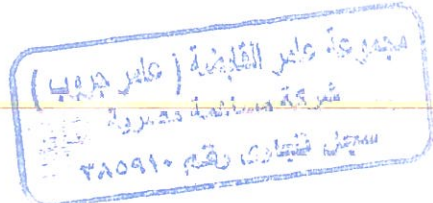 مجموعة عامر القابضة ( عامر جروب )
شركة مساهمة مصرية
سجل تجارى رقم ٣٨٥٩١٠